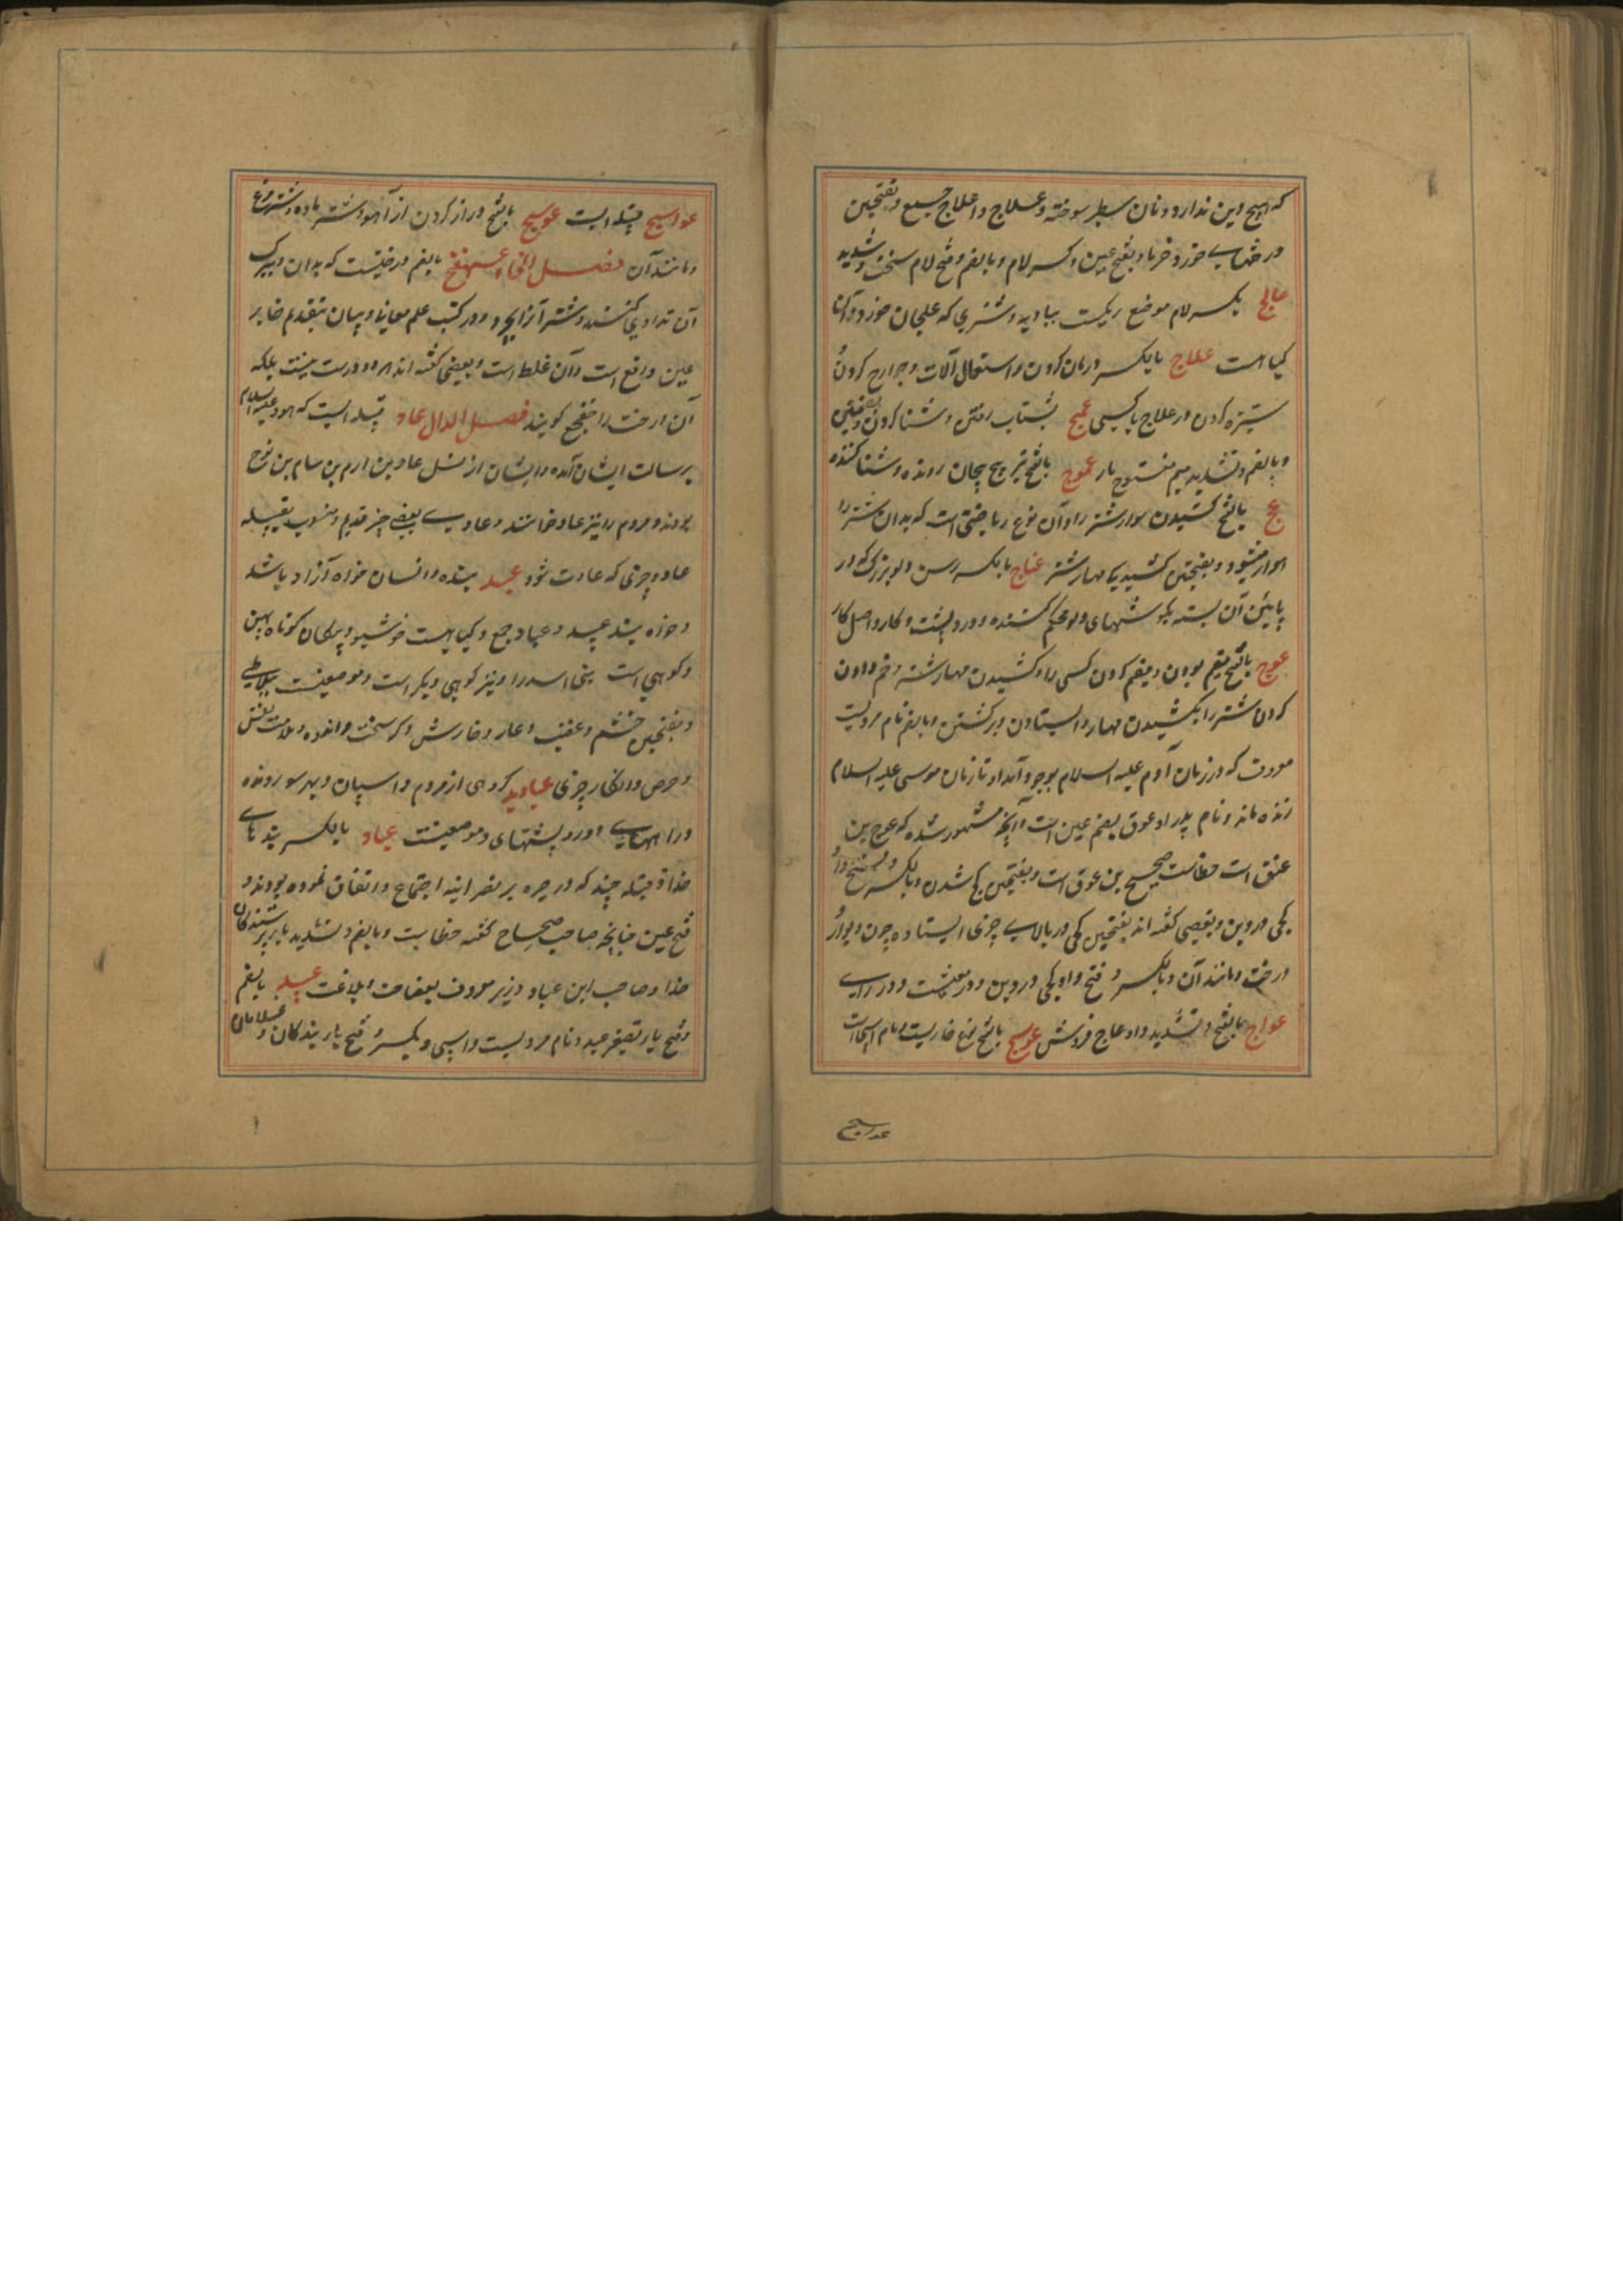 که هیچ دین ندارد و نان سطبر سوخته و علاج و اعلاج جمع و بفتحین
درختهای خورد خرما و بفتح عین و کسر لام و بالضم و فتح لام سخت و شدید
عالج بکسر لام موضع ریگست ببادیه و شتری که علجان خورد و آن
گیاهست علاج بالکسر درمان کردن و استعمال آلات و جوارح کردن
ستیزه کردن در علاج با کسی عمج بشتاب رفتن و شنا کردن
و بالضم و تشدید میم مفتوح مار عموج بالفتح تیر پیچ پیچان رونده و شنا کننده
عنج بالفتح کشیدن سوار شتر را و آن نوع ریاضتی است که بدان شتر را
هموار میشود و بفتحتین کشیدن مهار شتر عناج بالکسر رسن دلو بزرگ که در
پایین آن بسته بگوشتهای دلو محکم کنند و درد پشت و کار و اصل کار
عوج بالفتح مقیم بودن و مقیم کردن کسی را و کشیدن مهار شتر و خم دادن
کردن شتر را بکشیدن مهار و ایستادن و برگشتن و بالضم نام مردیست
معروف که در زمان آدم علیه السلام بوجود آمد و تا زمان موسی علیه السلام
زنده ماند و نام پدر او عوق بضم عین است و آنچه مشهور شده که عوج بن
عنق است خطاست صحیح بن عوق است و بفتحتین کج شدن و بالکسر و فتح واو
کجی در دین و بعضی گفته اند بفتحتین کجی در بالای چیزی ایستاده چون دیوار
درخت و مانند آن و بالکسر و فتح واو کجی در دین و در معیشت و در رای
عواج بالفتح و تشدید واو عاج فروش عوسج بالفتح نوع خاریست و نام اسپیست
عواسج
عواسج قبیله ایست عوسج بالفتح دراز کردن از آهو و شتر ماده و شتر مرغ
و مانند آن فصل الخاء عهنفخ بالضم درختیست که بدان و ببرگ
آن تداوی کنند و شتر آنرا بچرد و در کتب علم معانی و بیان بتقدیم خا بر
عین واقع است و آن غلط است و بعضی گفته اند هر دو درست نیست بلکه
آن درخت را خفجع گویند فصل الدال عاد قبیله ایست که هود علیه السلام
برسالت ایشان آمده و ایشان از نسل عاد بن ارم بن سام بن نوح
بودند و مردم را نیز عاد خوانند و عادی یعنی چیز قدیم و منسوب بقبیله
عاد و چیزی که عادت شود عبد بنده و انسان خواه آزاد باشد
و خواه بنده عبید و عباد جمع و گیاهیست خوشبو و پیکان کوتاه پهن
و کوهی است بنی اسد را و نیز کوهی دیگر است و موضعیست ببلاد طی
و بفتحتین خشم و عفیت و عار و خارش و کر سخت و اندوه و ملامت نفس
و حرص و انکار چیزی عبادید گروهی از مردم و اسپان و بهر سو رونده
و راههای دور و پشتهای و موضعیست عباد بالکسر بندهای
خدا و قبیله چند که در حیره بر نصرانیه اجتماع و اتفاق نموده بودند و
فتح عین چنانچه صاحب صحاح گفته خطاست و بالضم و تشدید با پرستندگان
خدا و صاحب ابن عباد وزیر معروف بفصاحت و بلاغت عبید بالضم
و فتح با تصغیر عبد و نام مردیست و اسپی و بکسر و فتح با بندگان و غلامان